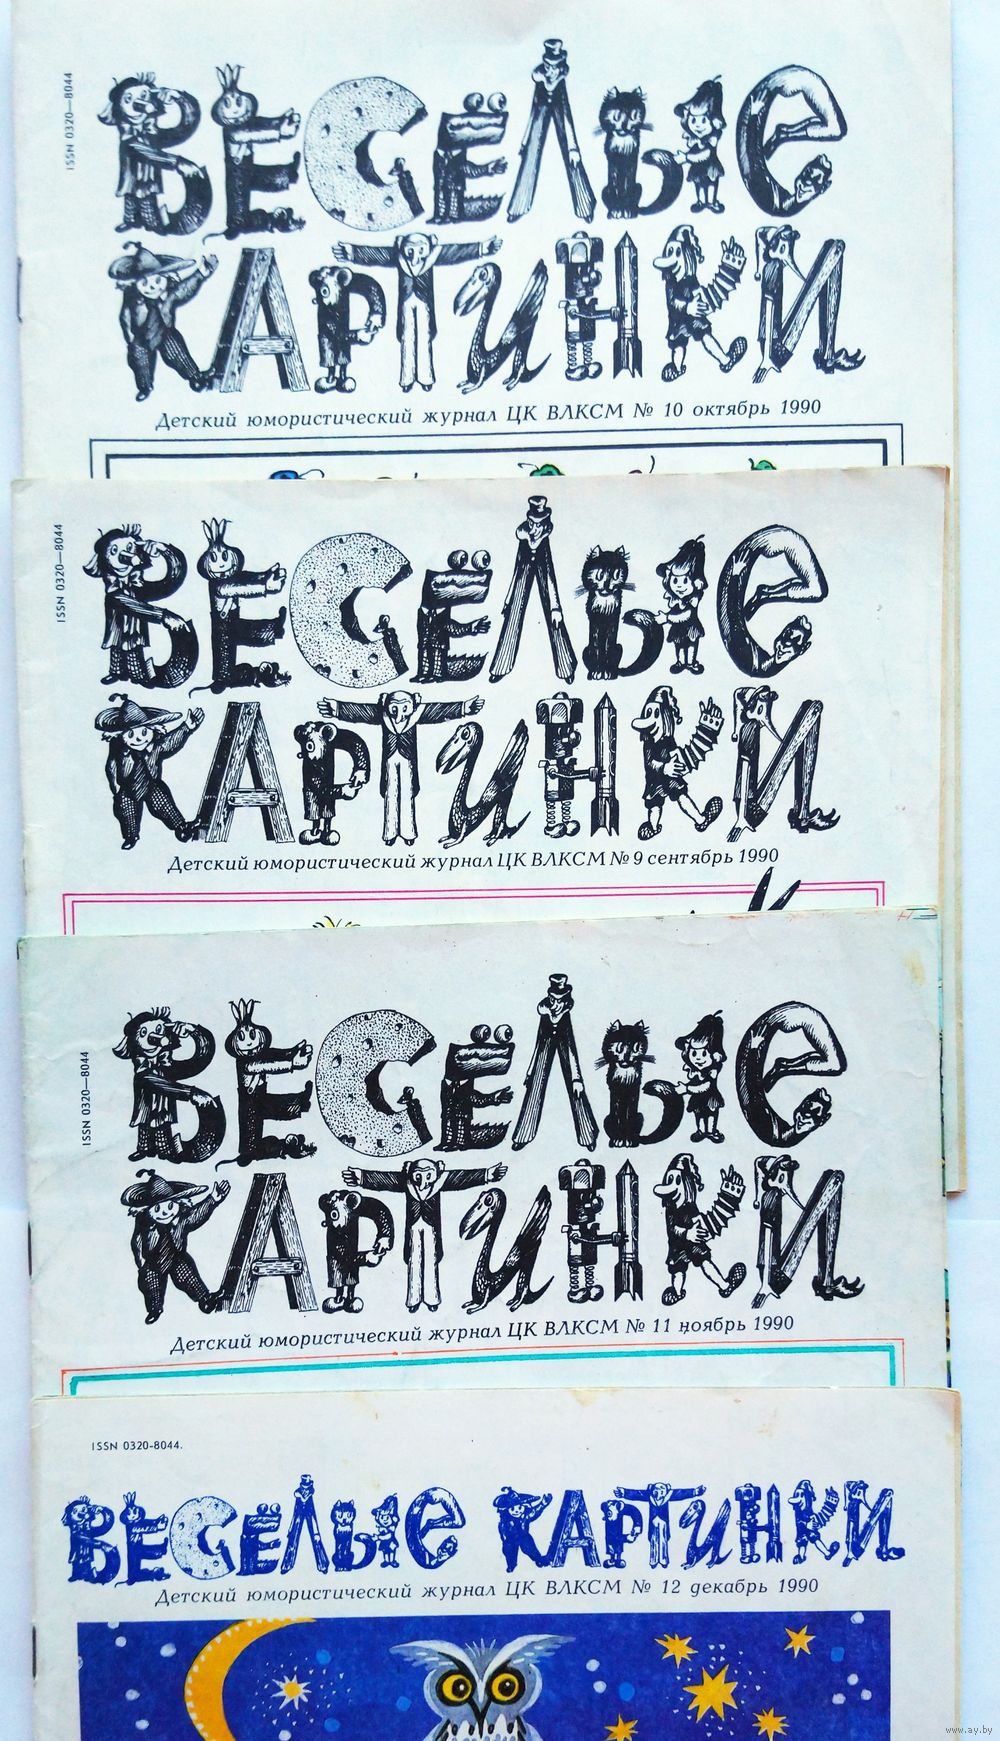 ISSN 0320—8044
ВЕСЁЛЫЕ
КАРТИНКИ
Детский юмористический журнал ЦК ВЛКСМ № 10 октябрь 1990
ISSN 0320—8044
ВЕСЁЛЫЕ
КАРТИНКИ
Детский юмористический журнал ЦК ВЛКСМ № 9 сентябрь 1990
ISSN 0320—8044
ВЕСЁЛЫЕ
КАРТИНКИ
Детский юмористический журнал ЦК ВЛКСМ № 11 ноябрь 1990
ISSN 0320-8044.
ВЕСЁЛЫЕ КАРТИНКИ
Детский юмористический журнал ЦК ВЛКСМ № 12 декабрь 1990
www.ay.by